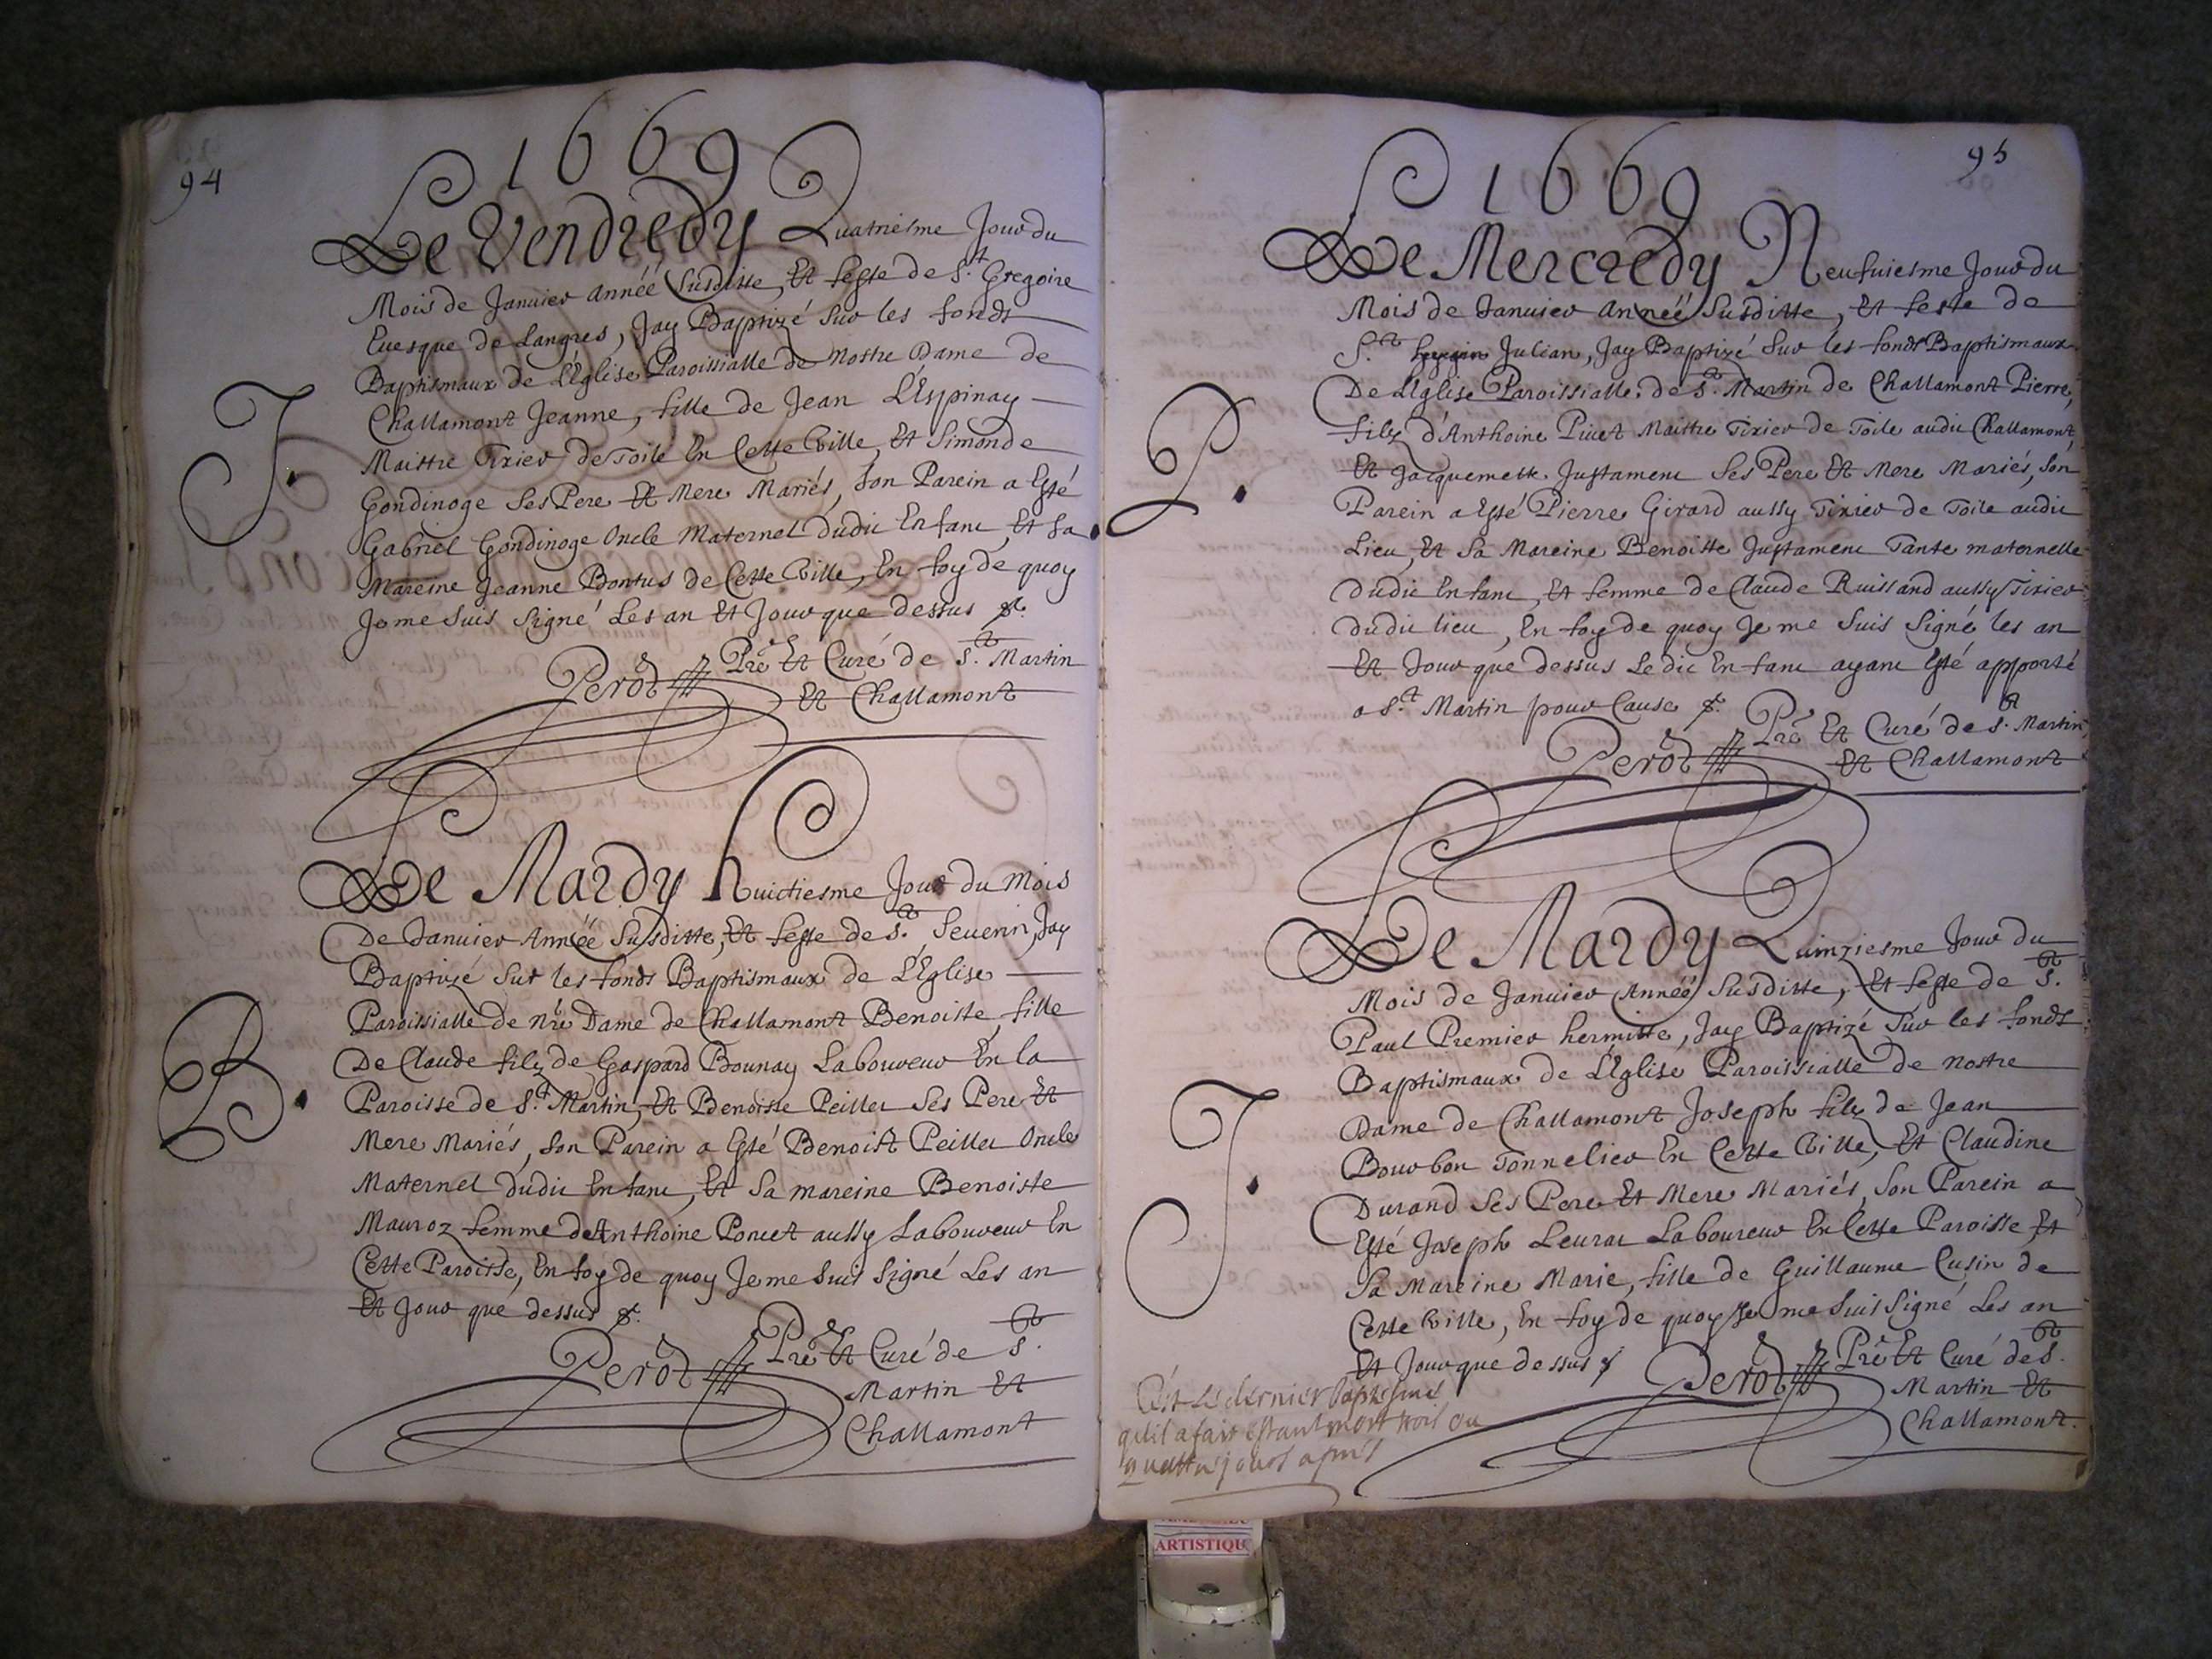 94
1669
Le Vendredy Quatriesme Jour du
Mois de Januier Année Susditte, Et feste de S.t Gregoire
Euesque de Langres, Jay Baptizé Sur les fonds
Baptismaux de L'Eglise Paroissialle de Nostre Dame de
Challamont Jeanne, fille de Jean L'Espinay
Maistre Tixier de Toile En Cette Ville, Et Simonde
Gondinoge Ses Pere Et Mere Mariés, Son Parein a Esté
Gabriel Gondinoge Oncle Maternel dudit Enfant, Et Sa
Mareine Jeanne Bontus de Cette Ville, En foy de quoy
Je me Suis Signé Les an Et Jour que dessus
J.
Perod Pre Et Curé de S.t Martin
Et Challamont
Le Mardy huictiesme Jour du Mois
De Januier Année Susditte, Et feste de S.t Seuerin, Jay
Baptizé Sur les fonds Baptismaux de L'Eglise
Paroissialle de Nre Dame de Challamont Benoiste, fille
De Claude filz de Gaspard Bounay Laboureur En la
Paroisse de S.t Martin, Et Benoiste Peillet Ses Pere Et
Mere Mariés, Son Parein a Esté Benoist Peillet Oncle
Maternel dudit Enfant, Et Sa mareine Benoiste
Mauroz femme d'Anthoine Poncet aussy Laboureur En
Cette Paroisse, En foy de quoy Je me Suis Signé Les an
Et Jour que dessus
B.
Perod Pre Et Curé de S.t
Martin Et
Challamont
95
1669
Le Mercredy Neufuiesme Jour du
Mois de Januier Année Susditte, Et feste de
S.t Julian, Jay Baptizé Sur les fonds Baptismaux
De L'Eglise Paroissialle de S.t Martin de Challamont Pierre,
filz d'Anthoine Piuet Maistre Tixier de Toile audit Challamont,
Et Jacquemette Justament Ses Pere Et Mere Mariés, Son
Parein a Esté Pierre Girard aussy Tixier de Toile audit
Lieu, Et Sa Mareine Benoitte Justament Tante maternelle
dudit Enfant, Et femme de Claude Ruissand aussy Tixier
dudit lieu, En foy de quoy Je me Suis Signé les an
Et Jour que dessus Ledit Enfant ayant Esté apporté
a S.t Martin pour Cause
P.
Perod Pre Et Curé de S.t Martin
Et Challamont
Le Mardy Quinziesme Jour du
Mois de Januier Année Susditte, Et feste de S.t
Paul Premier hermitte, Jay Baptizé Sur les fonds
Baptismaux de L'Eglise Paroissialle de Nostre
Dame de Challamont Joseph filz de Jean
Bourbon Tonnelier En Cette Ville, Et Claudine
Durand Ses Pere Et Mere Mariés, Son Parein a
Esté Joseph Leurat Laboureur En Cette Paroisse Et
Sa Mareine Marie, fille de Guillaume Cusin de
Cette Ville, En foy de quoy Je me Suis Signé Les an
Et Jour que dessus
J.
Perod Pre Et Curé de S.t
Martin Et
Challamont.
C'est le dernier baptesme
qu'il a fait estant mort trois ou
quattre jours apres
ARTISTIQU